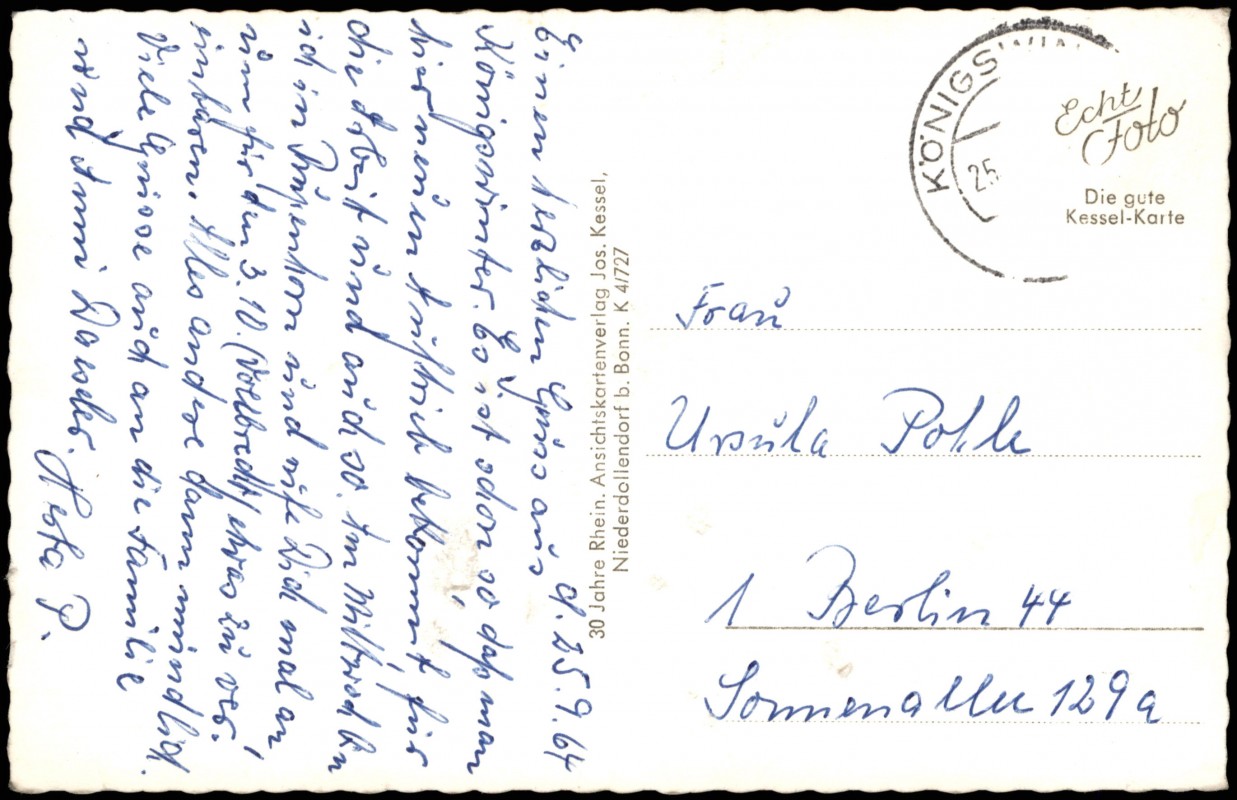 d. 25.9.64
Einen herzlichen Gruss aus
Königswinter. Es ist schon so, daß man
hier neuen Auftrieb bekommt, für
die Arbeit und auch so. Am Mittwoch bin
ich in Rupenhorn und rufe Dich mal an
um für den 3.10. (Vollbracht) etwas zu ver-
einbaren. Alles andre dann mündlich.
Viele Grüsse auch an die Familie
und Ammi
P.
30 Jahre Rhein. Ansichtskartenverlag Jos. Kessel,
Niederdollendorf b. Bonn. K 4/727
KÖNIGSWIN
25
Echt
Foto
Die gute
Kessel-Karte
Frau
Ursula Pohle
1 Berlin 44
Sonnenallee 129a